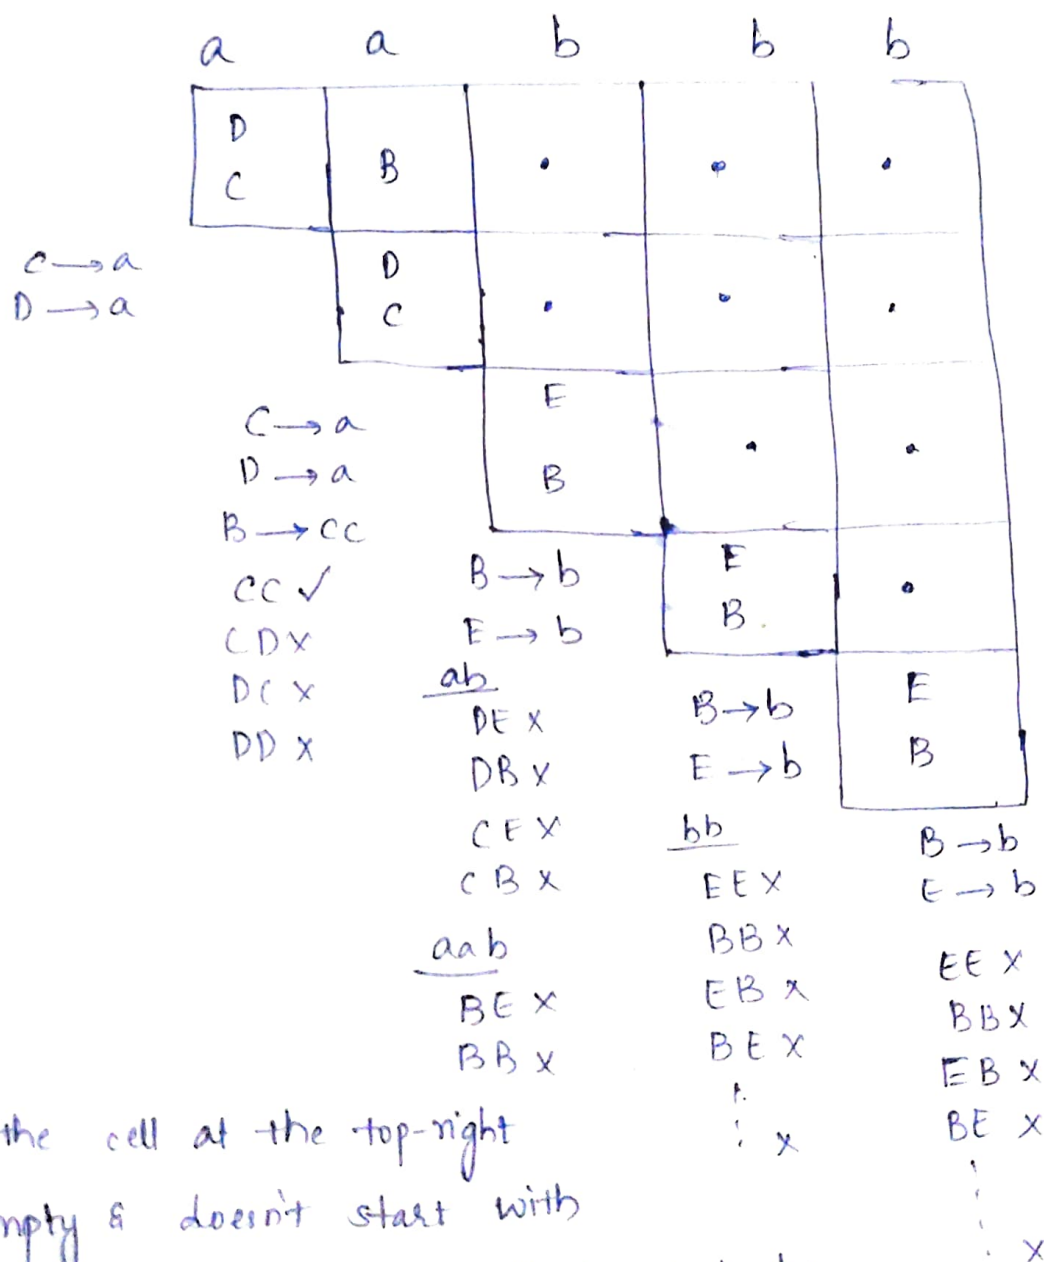 a a b b b
D
C
B
D
C
C → a
D → a
E
B
C → a
D → a
B → CC
CC ✓
CD X
DC X
DD X
B → b
E → b
ab
DE X
DB X
CE X
CB X
aab
BE X
BB X
E
B
B → b
E → b
bb
EE X
BB X
EB X
BE X
X
E
B
B → b
E → b
EE X
BB X
EB X
BE X
X
the cell at the top-right
mpty & doesn't start with